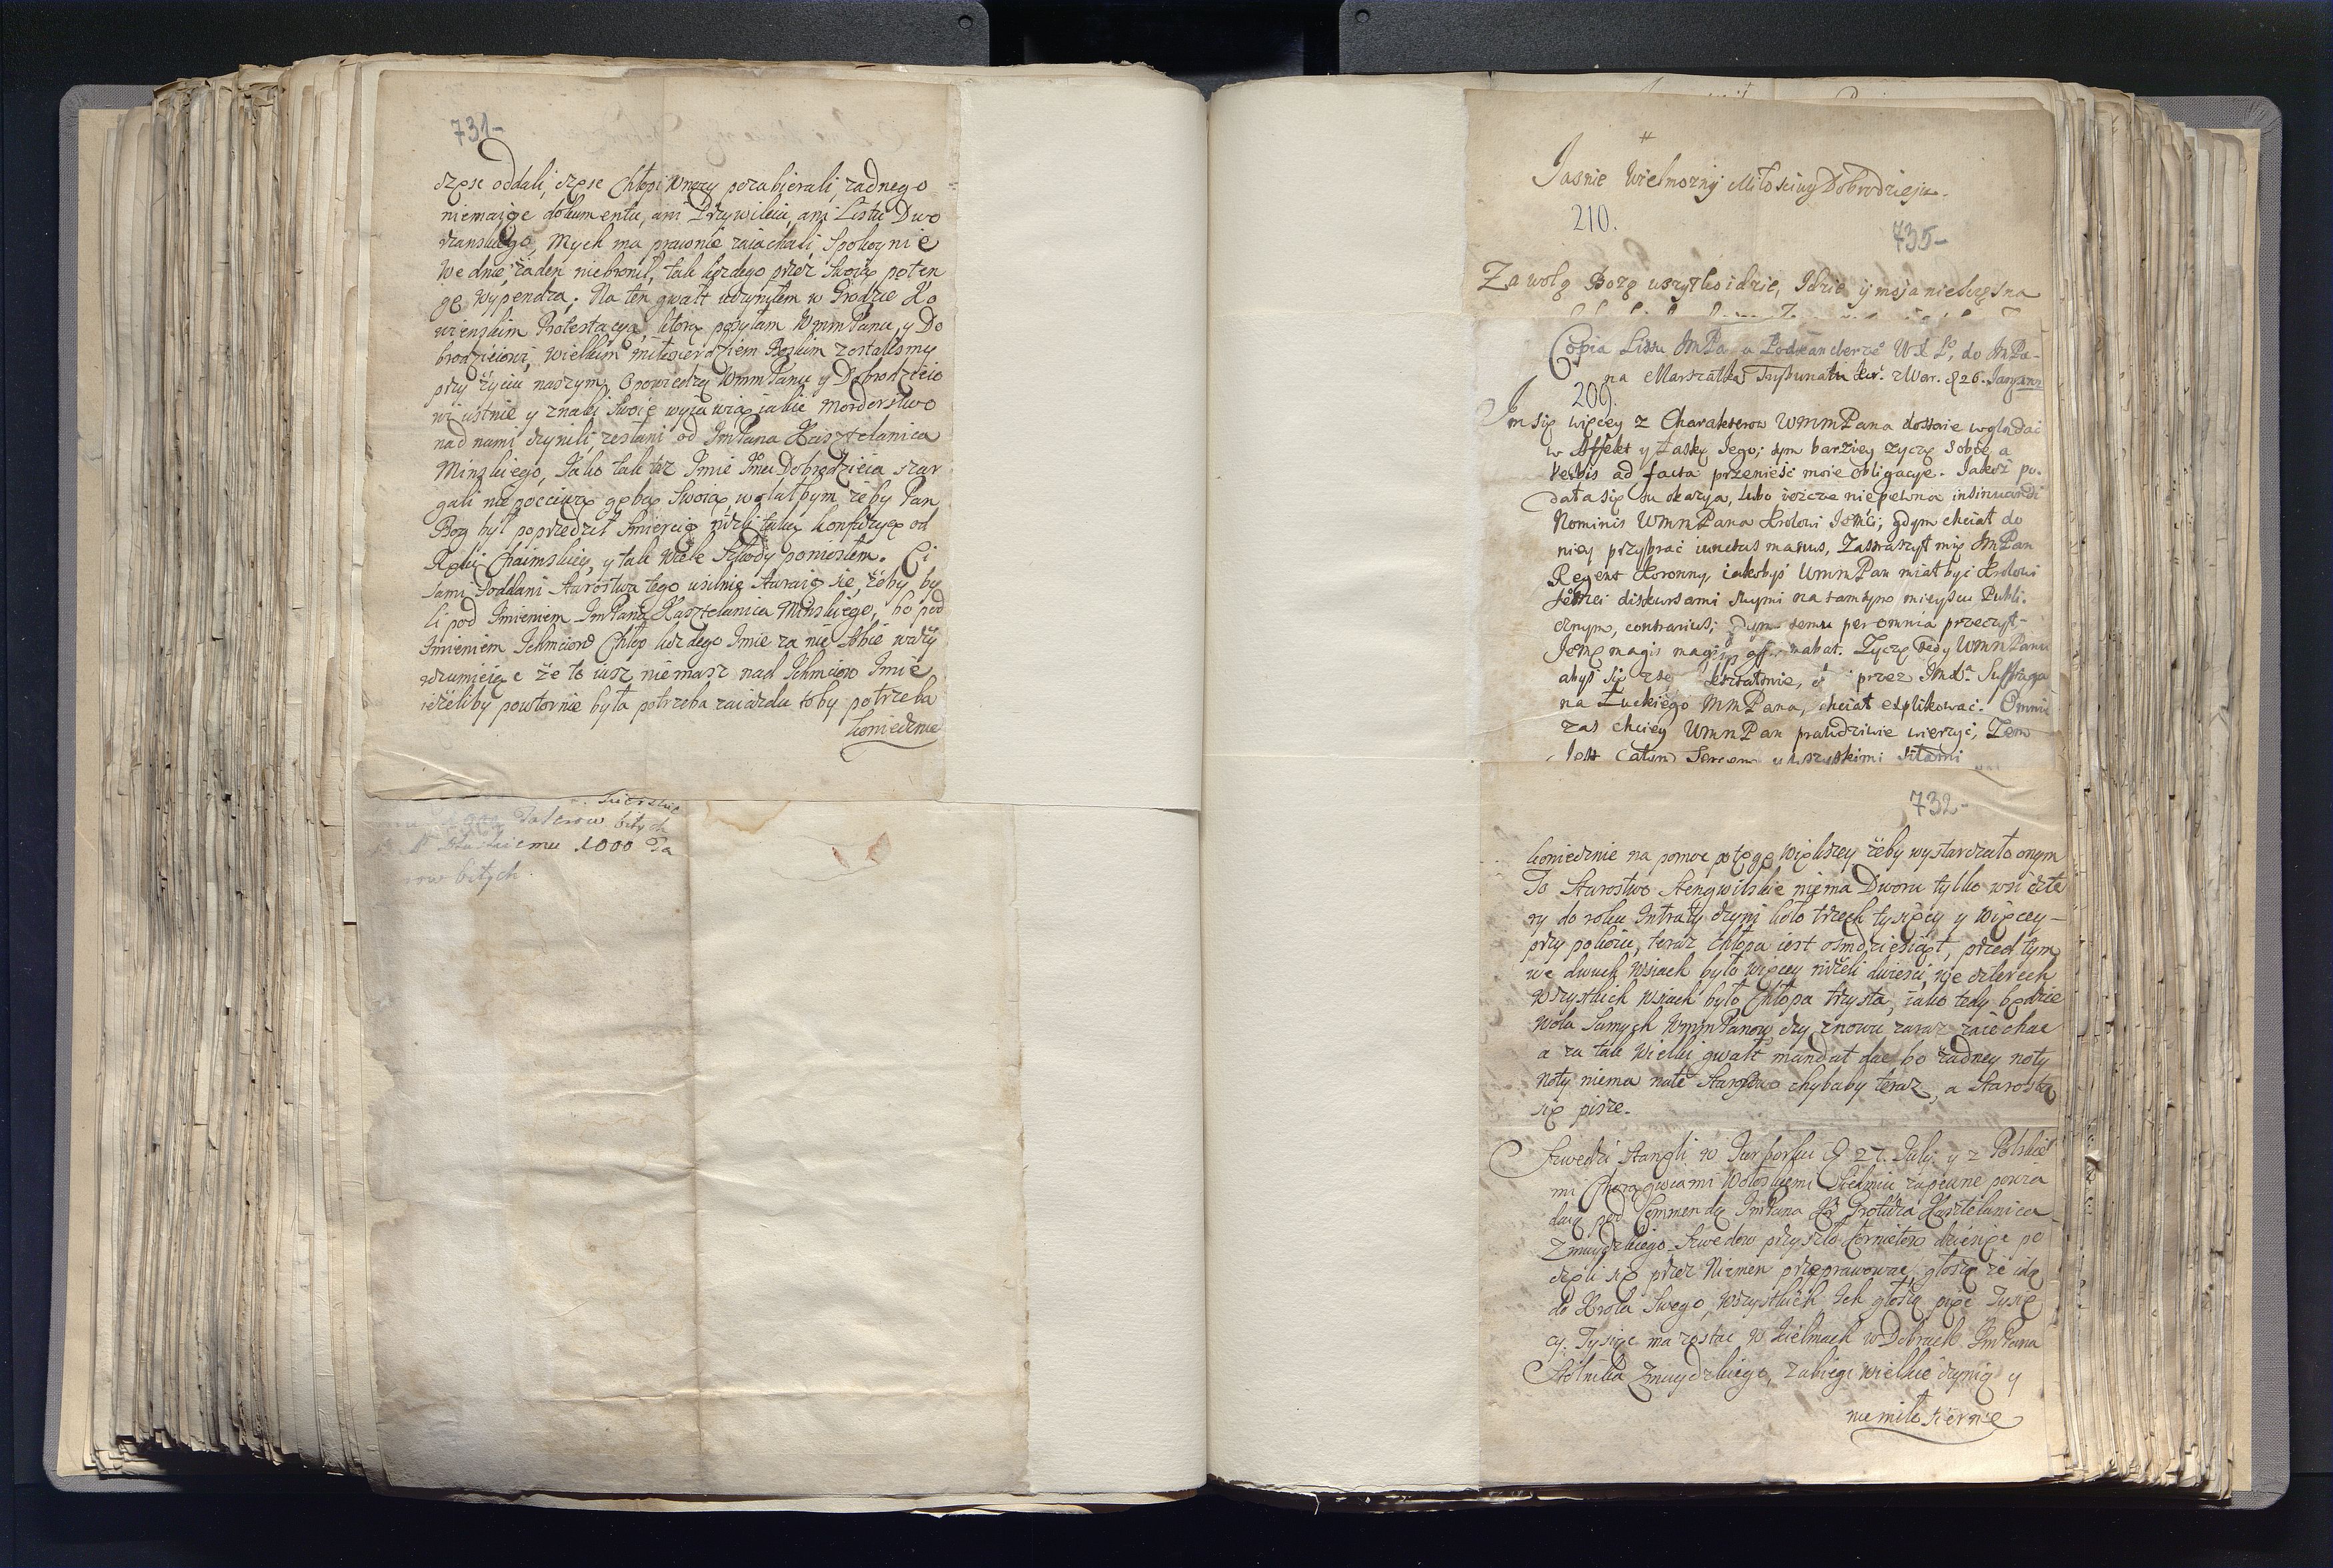 731-
częśc oddali, częśc Chłopi W nocy pozabierali, żadnego
niemaiąc dokumentu, ani Przywileiu, ani Listu Dwo
rzanskiego, Mych ma prawnie zaiachali Spokoynie
We dnie żaden niebronił, tak każdego przez Swoią poten
gę wypendza; Na ten gwałt uczyniłem w Grodzie Ko
wienskim Protestacyą, ktorą posyłam WmmPanu, y Do
brodzieiowi, Wielkim miłosierdziem Boskim zostalismy
przy życiu naszym, Opowiedzą WmmPanu y Dobrodzieio
wi ustnie y znaki Swoie wyiawią iakie morderstwo
nad nami czynili zesłani od ImPana Kasztelanica
Minskiego, Jako tak też Imie Dobrodzieia szar
gali niepoczciwą gębą Swoią, wolałbym żeby Pan
Bog był poprzedził Smiercią niżeli taką konfuzyę od
Chaimskiey, y tak Wiele Szkody poniosłem. Ci
Sami Poddani Starostwa tego usilnie Staraią się, żeby by
li pod Imieniem ImPana Kasztelanica Minskiego, bo pod
Imieniem Ichmciow Chłop każdego Imie za nic Sobie waży
rozumieiąc że to iusz niemasz nad Ichmciow Imie
ieżeliby powtornie była potrzeba zaiazdu toby potrzeba
koniecznie
Talerow bitych
1000 Ta
row bitych
Jasnie Wielmozny Miłosciwy Dobrodzieju.
210.
735-
Za wolą Bożą wszytko idzie, Idzie y moja nieszczęsna
Copia Listu JmPana Podkanclerze° W X L°, do JmPa-
na Marszałka Trybunału z War. d 26. January
209.
Im się więcey z Charakterow WMMPana dostaie wglądać
w Affekt y Łaskę Jego; tym barziey życzę Sobie, a
verbis ad facta przenieść moie obligacye. Jakoż po-
data się tu okazya, lubo ieszcze niepewna insinuandi
Nominis WmnPana Krolowi Jemci; gdym chciał do
niey przybrać iunctas manus, Zastraszył mię JmPan
Regent Koronny, iakobyś WmmPan miał być Krolowi
Jemci diskursami swymi na tamtym mieyscu Publi-
cznym, contrarius; Dum temu per omnia przeczył-
Jemę magis magisq affirmabat. Życzę tedy WmnPanu
abyś się przez Suffraga
na Łuckiego MmPana, chciał explikować. Omni
zas chciey WmnPan prawdziwie wierzyć, Zem
Jest Całym Sercem y wszystkimi siłami
732-
koniecznie na pomoc potęgę Większey żeby wystarczało onym
To Starostwo Stengwilskie niema Dworu tylko wsi czte
ry do roku Intraty czyni koło trzech tysięcy y Więcey-
przy pokoiu, teraz chłopa iest osmdziesiąt, przed tym
we dwuch Wsiach było więcey niżeli dwieści, we czterech
wszystkich wsiach było Chłopa trzysta, iako tedy będzie
Wola Samych WmmPanow, czy znowu zaraz zaiechac
a za tak Wielki gwałt mandat dac bo żadney noty
Noty niema nate Starostwo chybaby teraz, a Starostą
się pisze.
Szwedzi Stanęli w Jurborku d 27. July y z Polskie
mi Chorągwiami Wołoskiemi zapewne powia
daią pod Commendą ImPana Grotuza Kasztelanica
Zmuydzkiego, Szwedow przyszło Kornietow dziesięc po
częli się przez Niemen przeprawowac, głoszą że idą
do Krola Swego, Wszystkich Ich głoszą pięc Tysię
cy. Tysiąc ma zostac w Kielmach w Dobrach ImPana
Stolnika Zmuydzkiego, Zabiegi wielkie czynią y
niemiłosierne